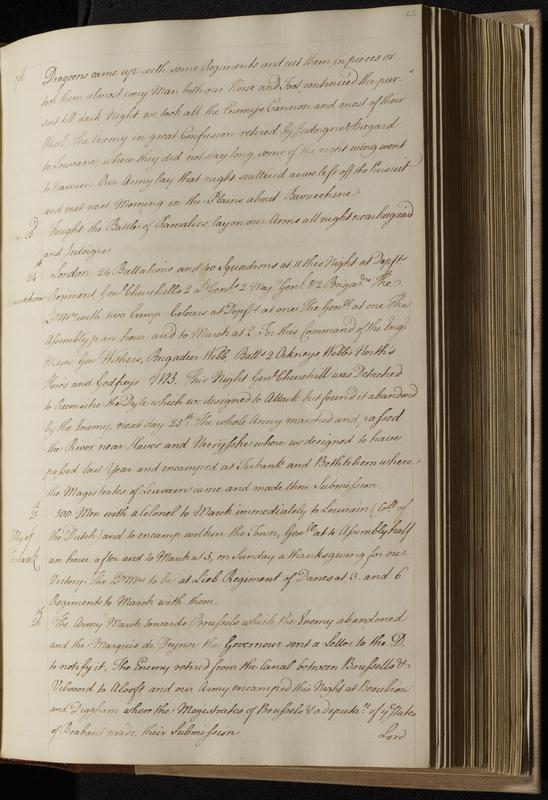 65
Dragoons came up with some Regiments and cut them in pieces or
took them almost every Man both our Horse and Foot continued the pur-
suit till dark Night we took all the Enemys Cannon and most of their
The Enemy in great Confusion retired by Judoigne &
to Louvain, where they did not stay long, some of the right wing went
to Namur. Our Army lay that night scattered as we left off the Pursuit
and met next Morning in the Plains about Bavechem
23d Fought the Battle of Ramalies, lay on our Arms all night near
and Judoigne
24th London 24 Battalions and 40 Squadrons at 11 this Night at
Regiment Genl. Churchills 2 Lt. Genls 2 Majr. Genls & 2 Brigadrs. The
Qr Mrs with two Camp Colours at at one The Genll at one The
Assembly ½ an hour and to March at 2. For this Command of the Engl.
Major Genl. Withers, Brigadier Webb Batts. 2 Orkneys Webbs Norths
and Godfreys. This Night Genl. Churchill was Detached
to Reconoitre the Dyle which we designed to Attack but found it abandond
by the Enemy, next day 25th. The whole Army marched and passed
the River near and Neeryssche where we designed to have
passed last Year and encamped at Terbank and Bethlehem where
the Magistrates of Louvain came and made their Submission.
500 Men with a Colonel to March immediately to Louvain (Coll. of
the Dutch) and to encamp within the Town, Genll. at 4 Assembly half
an hour after and to March at 5, on Sunday a thanksgiving for our
Victory. The Qr Mrs to be at Lieb Regiment of Danes at 3. and 6
Regiments to March with them.
26th The Army March towards Brussels which the Enemy abandoned
and the Marquis de Deynse the Governour sent a Letter to the D.
to notify it, The Enemy retir'd from the Canal between Brussells &
Vilvord to Alosft and our Army encamped this Night at Beaulieu
and Diggham where the Magistrates of Brussels & a deputan. of ye States
of Brabant made their Submission
Lord